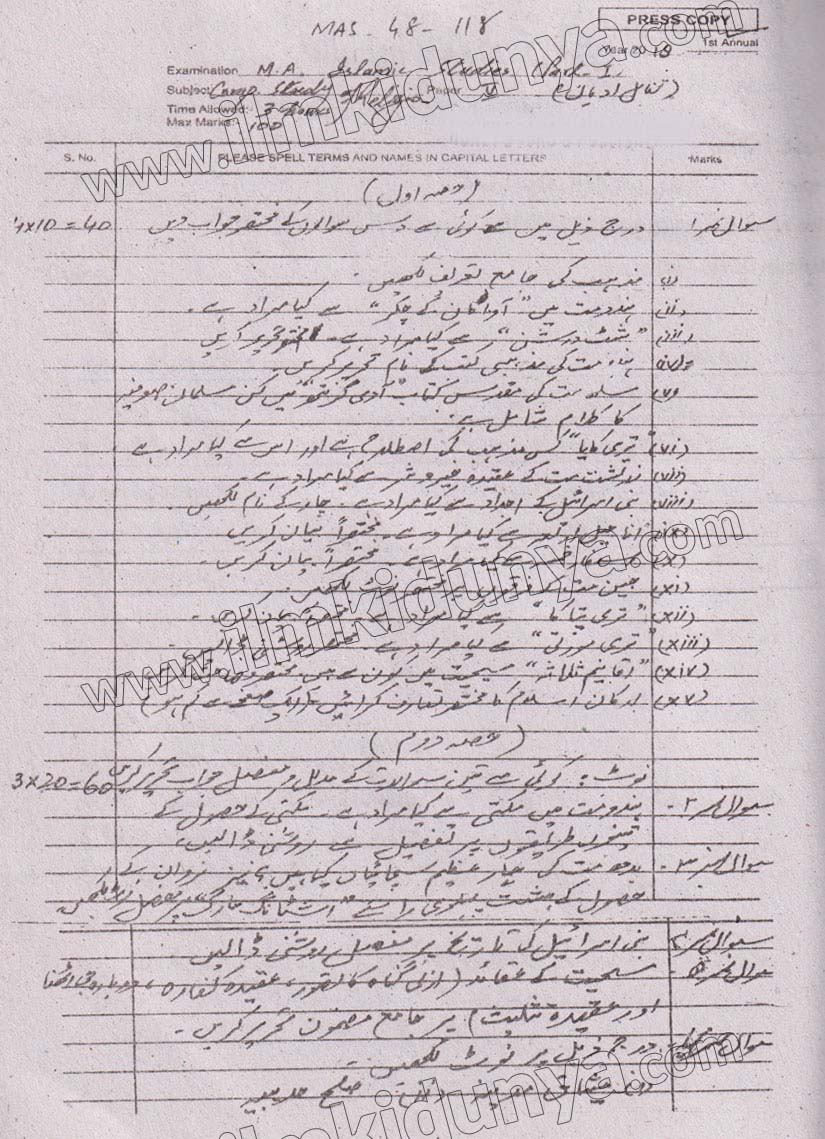 MAS - 48 - 118
PRESS COPY
Year 2018 1st Annual
Examination M.A. Islamic Studies Part-I
Subject Comp. Study of Religions Paper V (تقابل ادیان)
Time Allowed: 3 Hours
Max Marks: 100
S. No. PLEASE SPELL TERMS AND NAMES IN CAPITAL LETTERS Marks
(حصہ اول)
سوال نمبر ۱ درج ذیل میں سے کوئی سے دس سوالوں کے مختصر جواب دیں 4x10=40
(i) مذہب کی جامع تعریف لکھیں۔
(ii) ہندومت میں "آواگان کے چکر" سے کیا مراد ہے۔
(iii) درشن" سے کیا مراد ہے۔ مختصر تحریر کریں
(iv) مت کی مذہبی کتب کے نام تحریر کریں۔
(v) سکھ مت کی مقدس کتاب "آدی گرنتھ" میں کن مسلمان صوفیہ
کا کلام شامل ہے۔
(vi) "تری کایا" کس مذہب کی اصطلاح ہے اور اس سے کیا مراد ہے
(vii) زرتشت مت کے عقیدہ خیر و شر سے کیا مراد ہے۔
(viii) بنی اسرائیل کے سے کیا مراد ہے۔ چار کے نام لکھیں۔
(ix) اناجیل اربعہ سے کیا مراد ہے۔ مختصراً بیان کریں۔
(x) سے کیا مراد ہے۔ مختصراً بیان کریں۔
(xi) جین مت کے لکھیں۔
(xii) "تری پتاکا" سے کیا مراد ہے۔
(xiii) "تری مورتی" سے کیا مراد ہے۔
(xiv) "اقانیم ثلاثہ" مسیحیت میں کون سے ہیں
(xv) ارکان اسلام کا مختصر تعارف کرائیں (ایک صفحے سے کم ہو)
(حصہ دوم)
نوٹ: کوئی سے تین سوالات کے مدلل و مفصل جواب تحریر کریں 3x20=60
سوال نمبر ۲- ہندومت میں مکتی سے کیا مراد ہے۔ مکتی کے حصول کے
تینوں طریقوں پر تفصیل سے روشنی ڈالیں۔
سوال نمبر ۳- بدھ مت کی چار عظیم سچائیاں کیا ہیں؟ نیز نروان کے
حصول کے ہشت پہلوی راستے "اشٹانگ مارگ" پر مفصل نوٹ لکھیں
سوال نمبر ۴ بنی اسرائیل کی تاریخ پر مفصل روشنی ڈالیں۔
سوال نمبر ۵ مسیحیت کے عقائد (ازلی گناہ کا تصور، عقیدہ کفارہ، دوبارہ جی اٹھنا
اور عقیدہ تثلیث) پر جامع مضمون تحریر کریں۔
سوال نمبر درج ذیل پر نوٹ لکھیں۔
(i) میثاق مدینہ (ii) صلح حدیبیہ
www.ilmkidunya.com
www.ilmkidunya.com
www.ilmkidunya.com